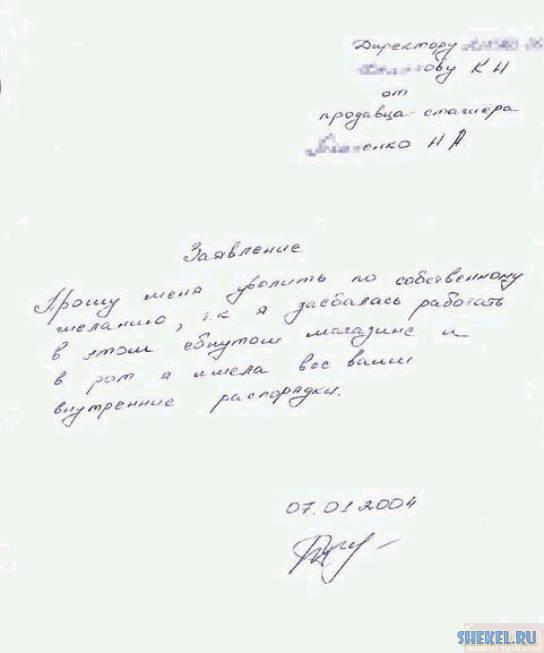 Директору
ову К Н
от
продавца-стажёра
енко Н А.
Заявление
Прошу меня уволить по собственному
желанию, т.к я заебалась работать
в этом ебнутом магазине и
в рот я имела все ваши
внутренние распорядки.
07.01.2004
SHEKEL.RU